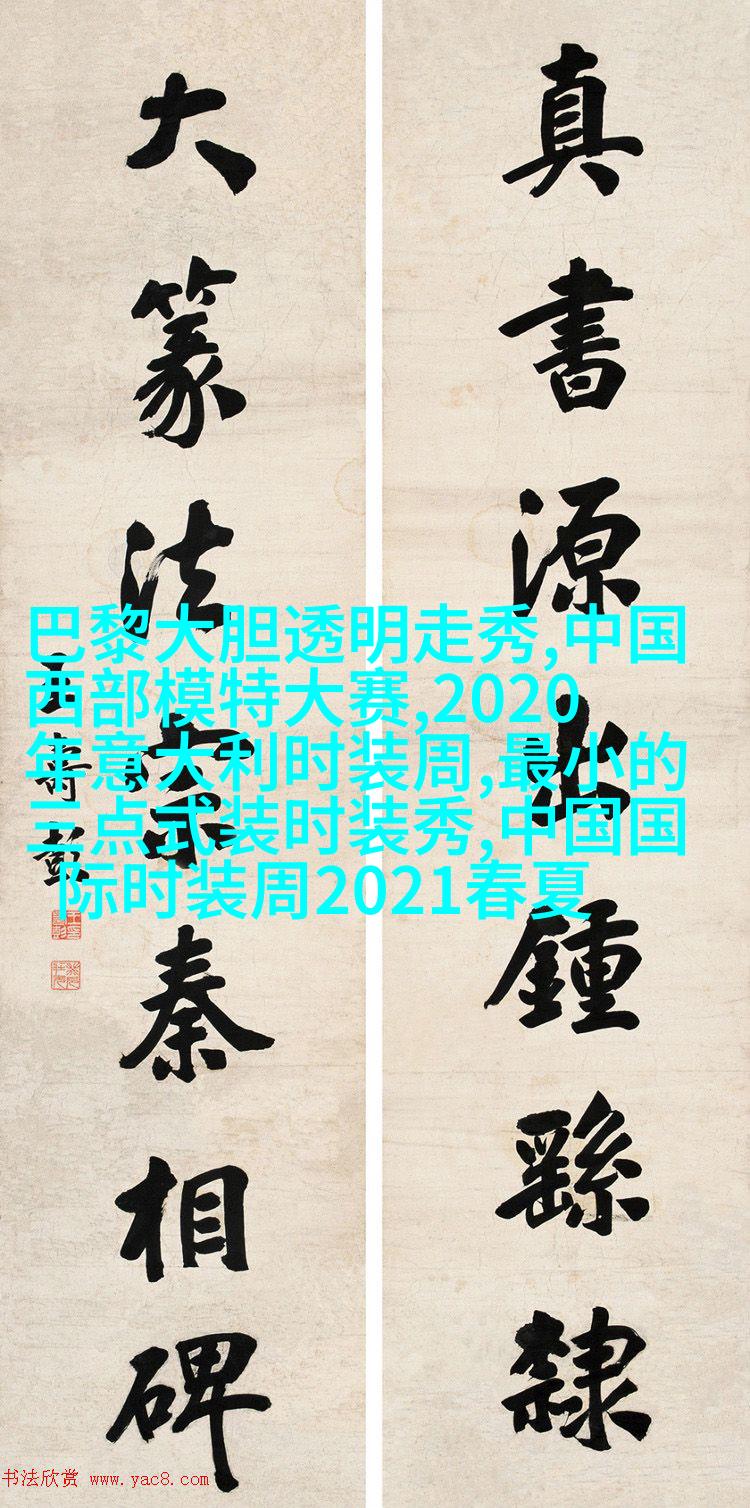 真書源出鍾繇隸
大篆法宗秦相碑
王壽彭
巴黎大胆透明走秀,中国
西部模特大赛,2020
年意大利时装周,最小的
三点式装时装秀,中国国
际时装周2021春夏
书法欣赏 www.yac8.com